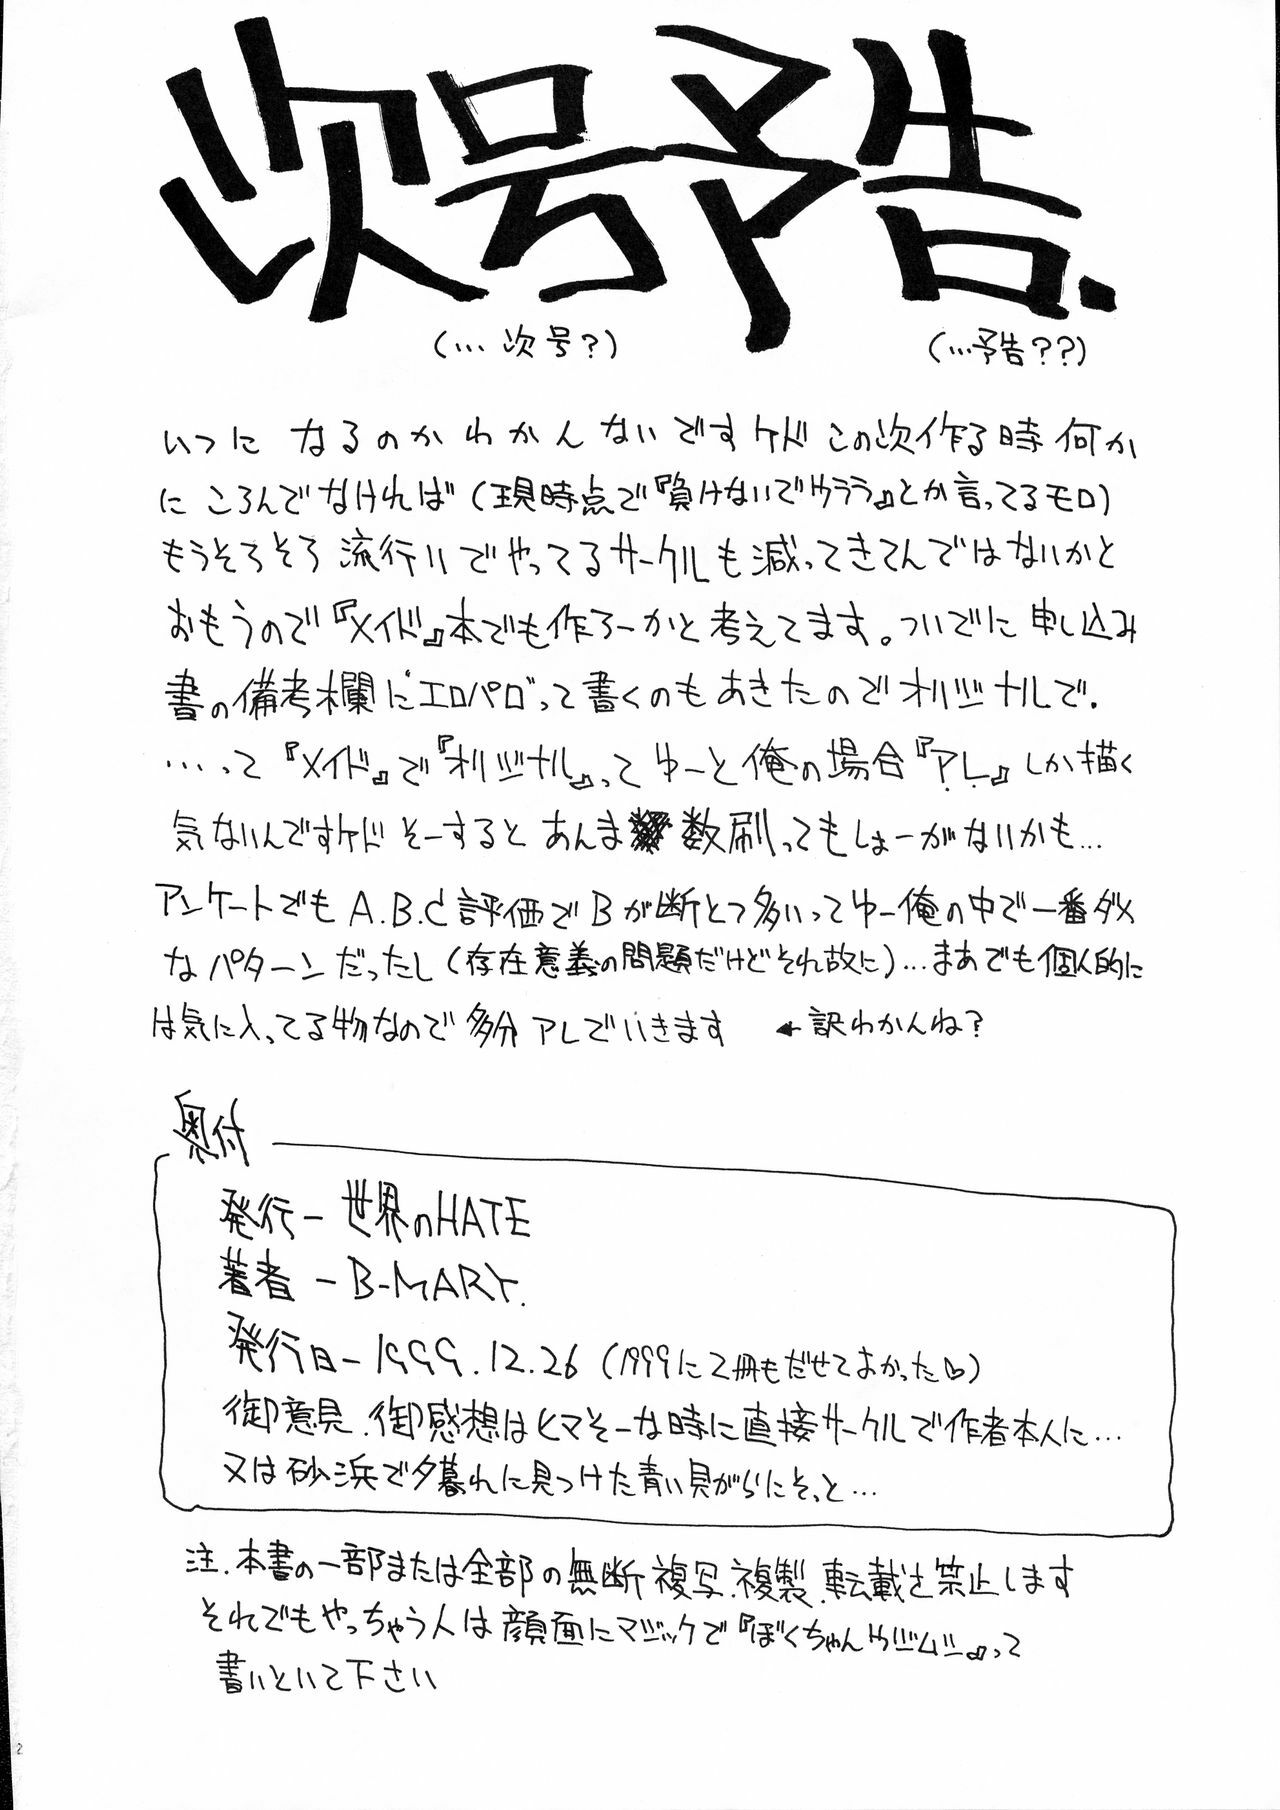 次号予告.
(…次号?)
(…予告??)
いつに なるのかわかんないですケド この次作る時 何か
に ころんでなければ (現時点で『負けないでウララ』とか言ってるモロ)
もうそろそろ 流行りでやってるサークルも減ってきてんではないかと
おもうので『メイド』本でも作ろーかと考えてます。ついでに申し込み
書の備考欄に"エロパロ"って書くのもあきたのでオリジナルで.
…って『メイド』で『オリジナル』ってゆーと俺の場合『アレ』しか描く
気ないんですケド そーするとあんま 数刷ってもしょーがないかも…
アンケートでも A.B.C評価でBが断とつ多いってゆー俺の中で一番ダメ
なパターンだったし(存在意義の問題だけどそれ故に)…まあでも個人的に
は気に入ってる物なので多分アレでいきます ←訳わかんね?
奥付
発行ー世界のHATE
著者ーB-MARY.
発行日ー1999.12.26 (1999に2冊もだせてよかった♡)
御意見.御感想はヒマそーな時に直接サークルで作者本人に…
又は砂浜で夕暮れに見つけた青い貝がらにそっと…
注.本書の一部または全部の無断複写.複製.転載を禁止します
それでもやっちゃう人は顔面にマジックで『ぼくちゃん
』って
書いといて下さい
2